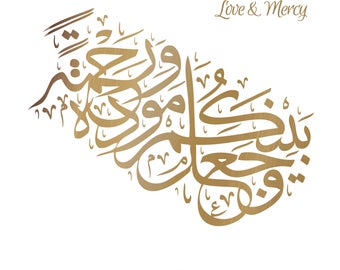 Love & Mercy
وجعل بينكم مودة ورحمة